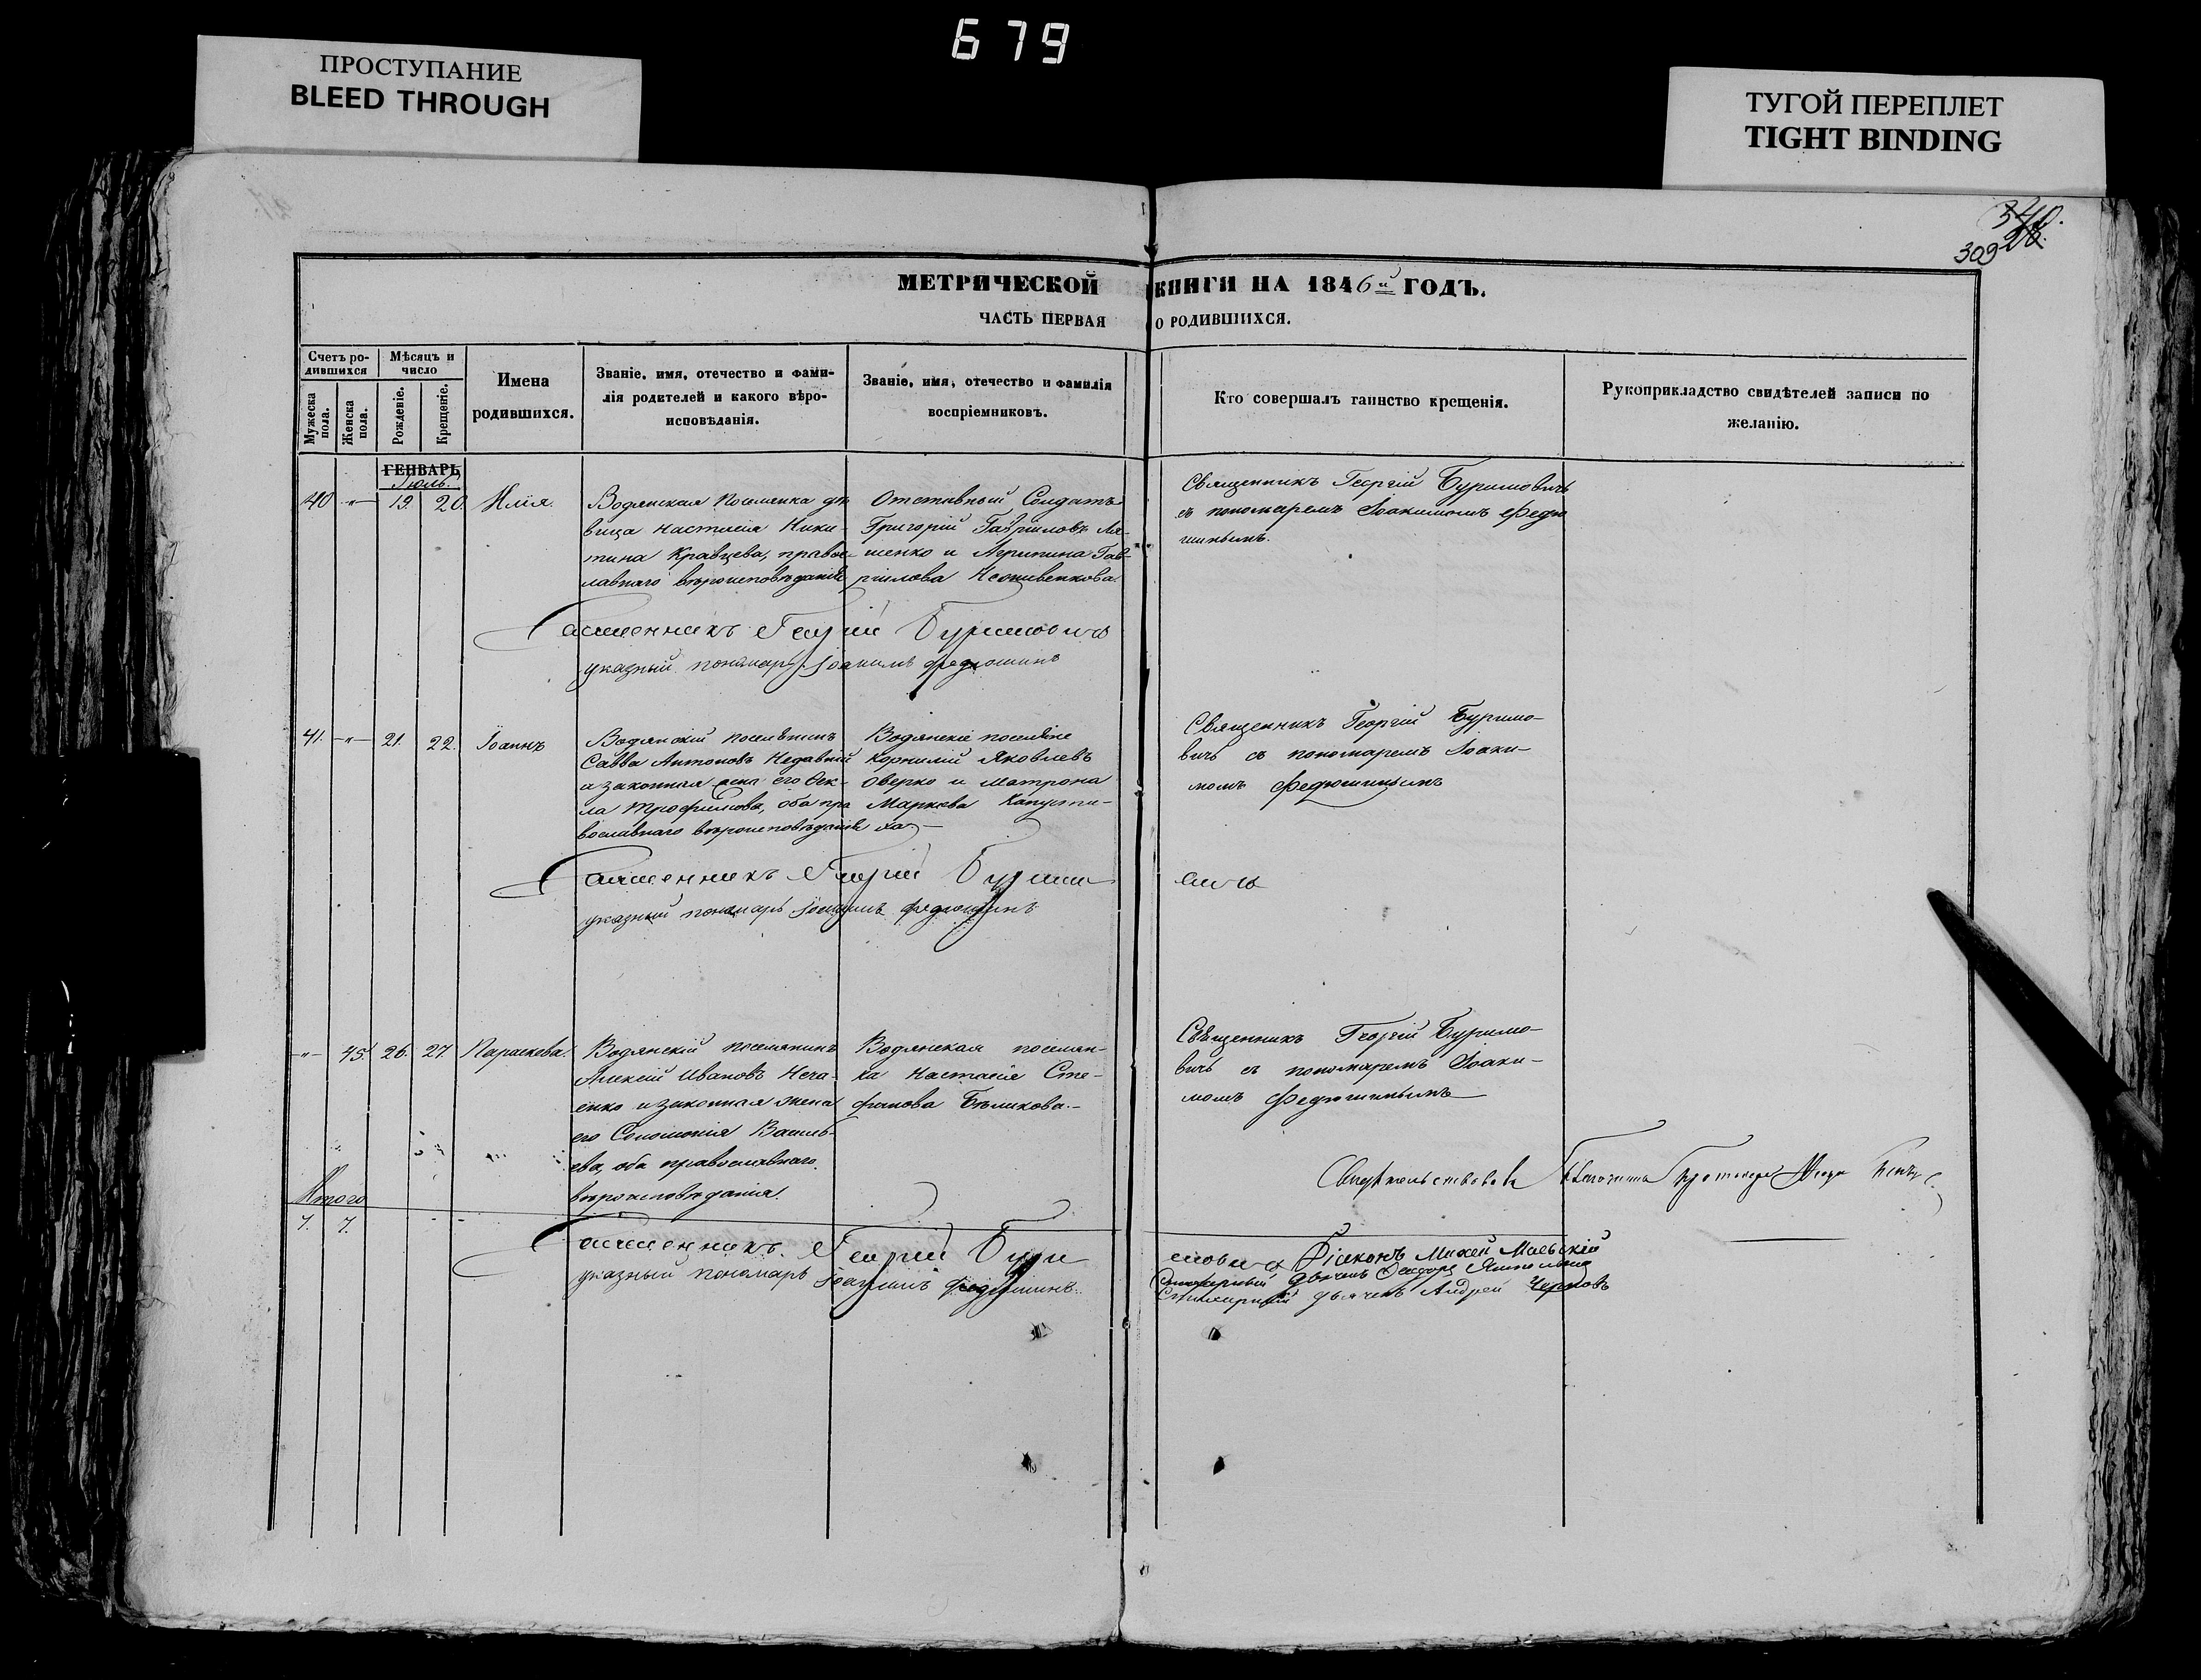 679
ПРОСТУПАНИЕ
BLEED THROUGH
ТУГОЙ ПЕРЕПЛЕТ
TIGHT BINDING
309
МЕТРИЧЕСКОЙ КНИГИ НА 1846й ГОДЪ.
ЧАСТЬ ПЕРВАЯ О РОДИВШИХСЯ.
Счетъ ро-
дившихся
Мужеска
пола.
Женска
пола.
Мѣсяцъ и
число
Рожденіе.
Крещеніе.
Имена
родившихся.
Званіе, имя, отечество и фами-
лія родителей и какого вѣро-
исповѣданія.
Званіе, имя, отечество и фамилія
воспріемниковъ.
Кто совершалъ таинство крещенія.
Рукоприкладство свидѣтелей записи по
желанію.
ГЕНВАРЬ
Іюль.
40 -"- 19. 20. Илія.
Водянская Поселянка дѣ
вица Настасія Ники-
тина Кравцева, правос-
лавнаго вѣроисповѣданія
Отставный Солдатъ
Григорій Гавріиловъ Ля-
шенко и Агрипина Гав-
ріилова
Священникъ Георгій Буримовичь
съ пономаремъ Іоакимомъ Федю
шинымъ.
Священникъ Георгій Буримовичь
указный пономарь Іоакимъ Федюшинъ
41. -"- 21. 22. Іоаннъ
Водянскій поселянинъ
Савва Антоновъ Недавній
и законная жена его Фек-
ла Трофимова, оба пра
вославнаго вѣроисповѣданія
Водянскіе поселяне
Корнилій Яковлевъ
Оверко и Матрона
Маркова Капусти-
ха.-
Священникъ Георгій Буримо-
вичь съ пономаремъ Іоаки-
момъ Федюшинымъ
Священникъ Георгій Буримовичь
указный пономарь Іоакимъ Федюшинъ
-"- 45. 26. 27. Параскева.
Водянскій поселянинъ
Алексій Ивановъ Неча-
енко и законная жена
его Соломонія Василь-
ева, оба православнаго
вѣроисповѣданія.
Водянская поселян-
ка Настасія Сте-
фанова Бѣликова.-
Священникъ Георгій Буримо-
вичь съ пономаремъ Іоаки-
момъ Федюшинымъ
Свидѣтельствовалъ Благочинный Протоіерей
Итого
7. 7.
Священникъ Георгій Буримовичь
указный пономарь Іоакимъ Федюшинъ.
Діаконъ Михей
Стихарный Дьячекъ Феодоръ
Стихарный дьячекъ Андрей Черновъ